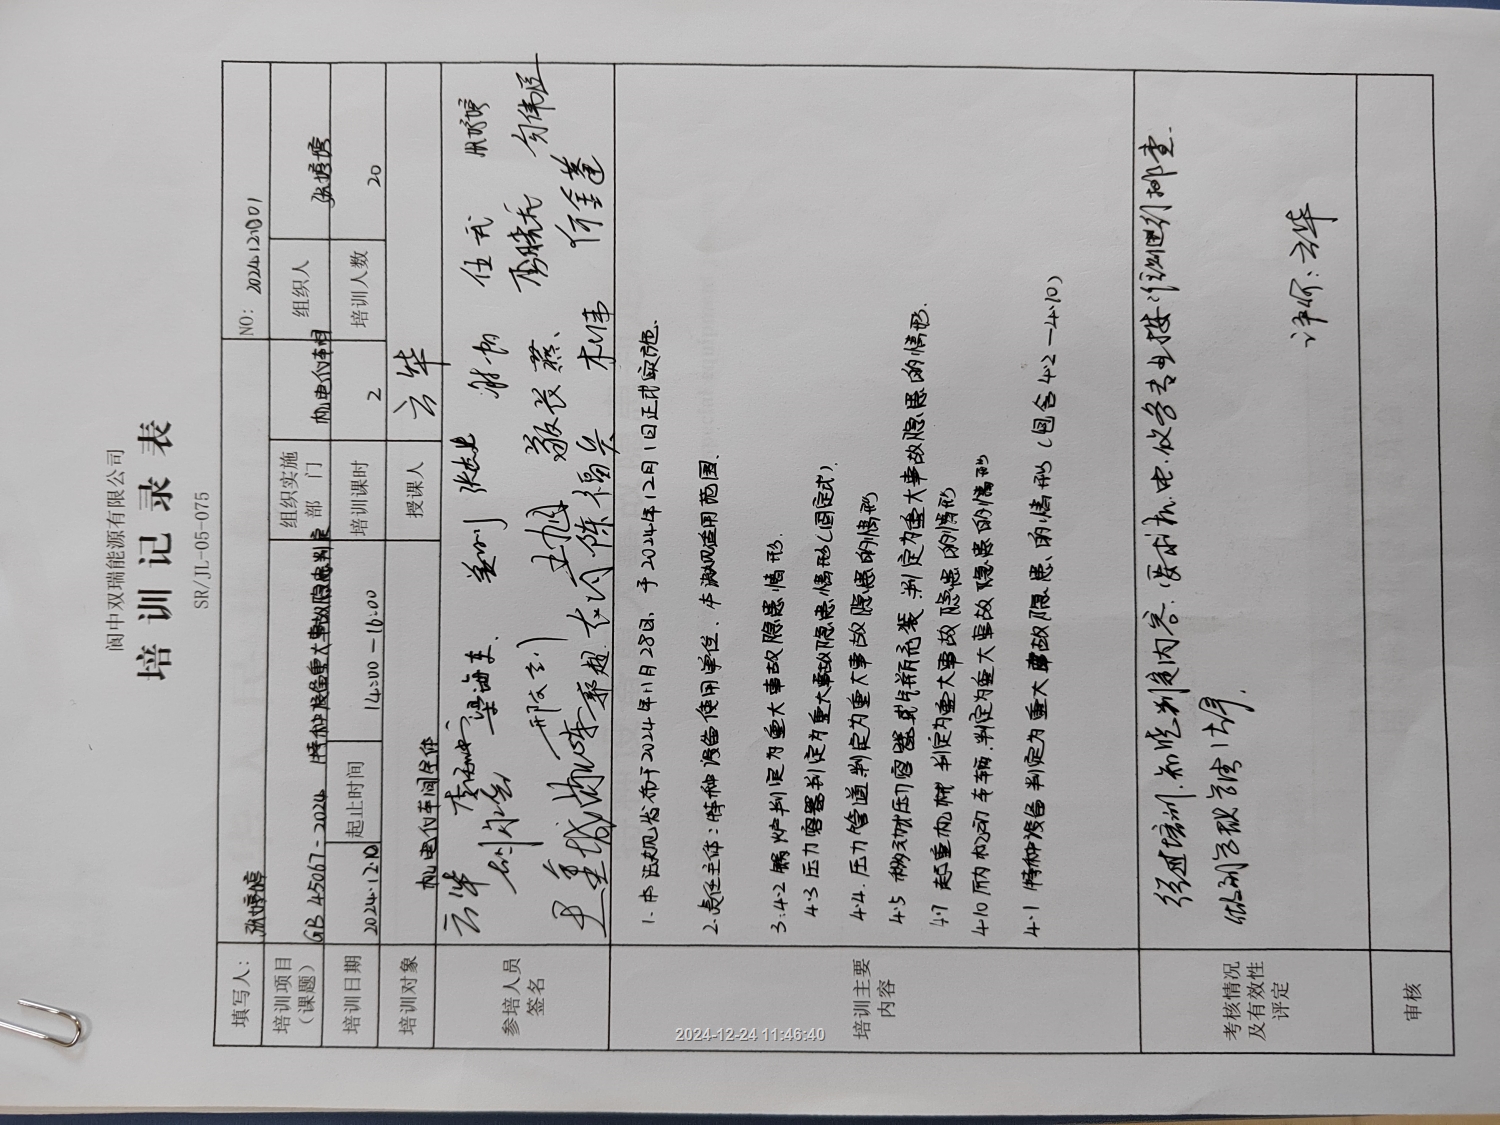 阆中双瑞能源有限公司
培训记录表
SR/JL-05-075
填写人： 张婷婷 NO: 2024.12.001
培训项目（课题） GB 45067-2024 特种设备重大事故隐患判定 组织实施部门 机电仪车间 组织人 张婷婷
培训日期 2024.12.10 起止时间 14:00-16:00 培训课时 2 培训人数 20
培训对象 机电仪车间全体 授课人 云华
参培人员签名
云华 梁海东 姜川 任武
王旭 敬长燕
尹全斌 郭超 陈福兴 何金蓬
培训主要内容
1. 本法规发布于2024年11月28日，于2024年12月1日正式实施.
2. 责任主体：特种设备使用单位、本法规适用范围.
3. 4.2 锅炉判定为重大事故隐患情形.
4.3 压力容器判定为重大事故隐患情形(固定式).
4.4. 压力管道判定为重大事故隐患的情形
4.5 移动式压力容器或气瓶充装判定为重大事故隐患的情形.
4.7 起重机械判定为重大事故隐患的情形
4.10 厂内机动车辆判定为重大事故隐患的情形
4.1 特种设备判定为重大事故隐患的情形(包含4.2—4.10)
考核情况及有效性评定
经过培训，知晓判定内容，要求机.电.仪各专业按准则进行排查.
评价：云华
审核
2024-12-24 11:46:40